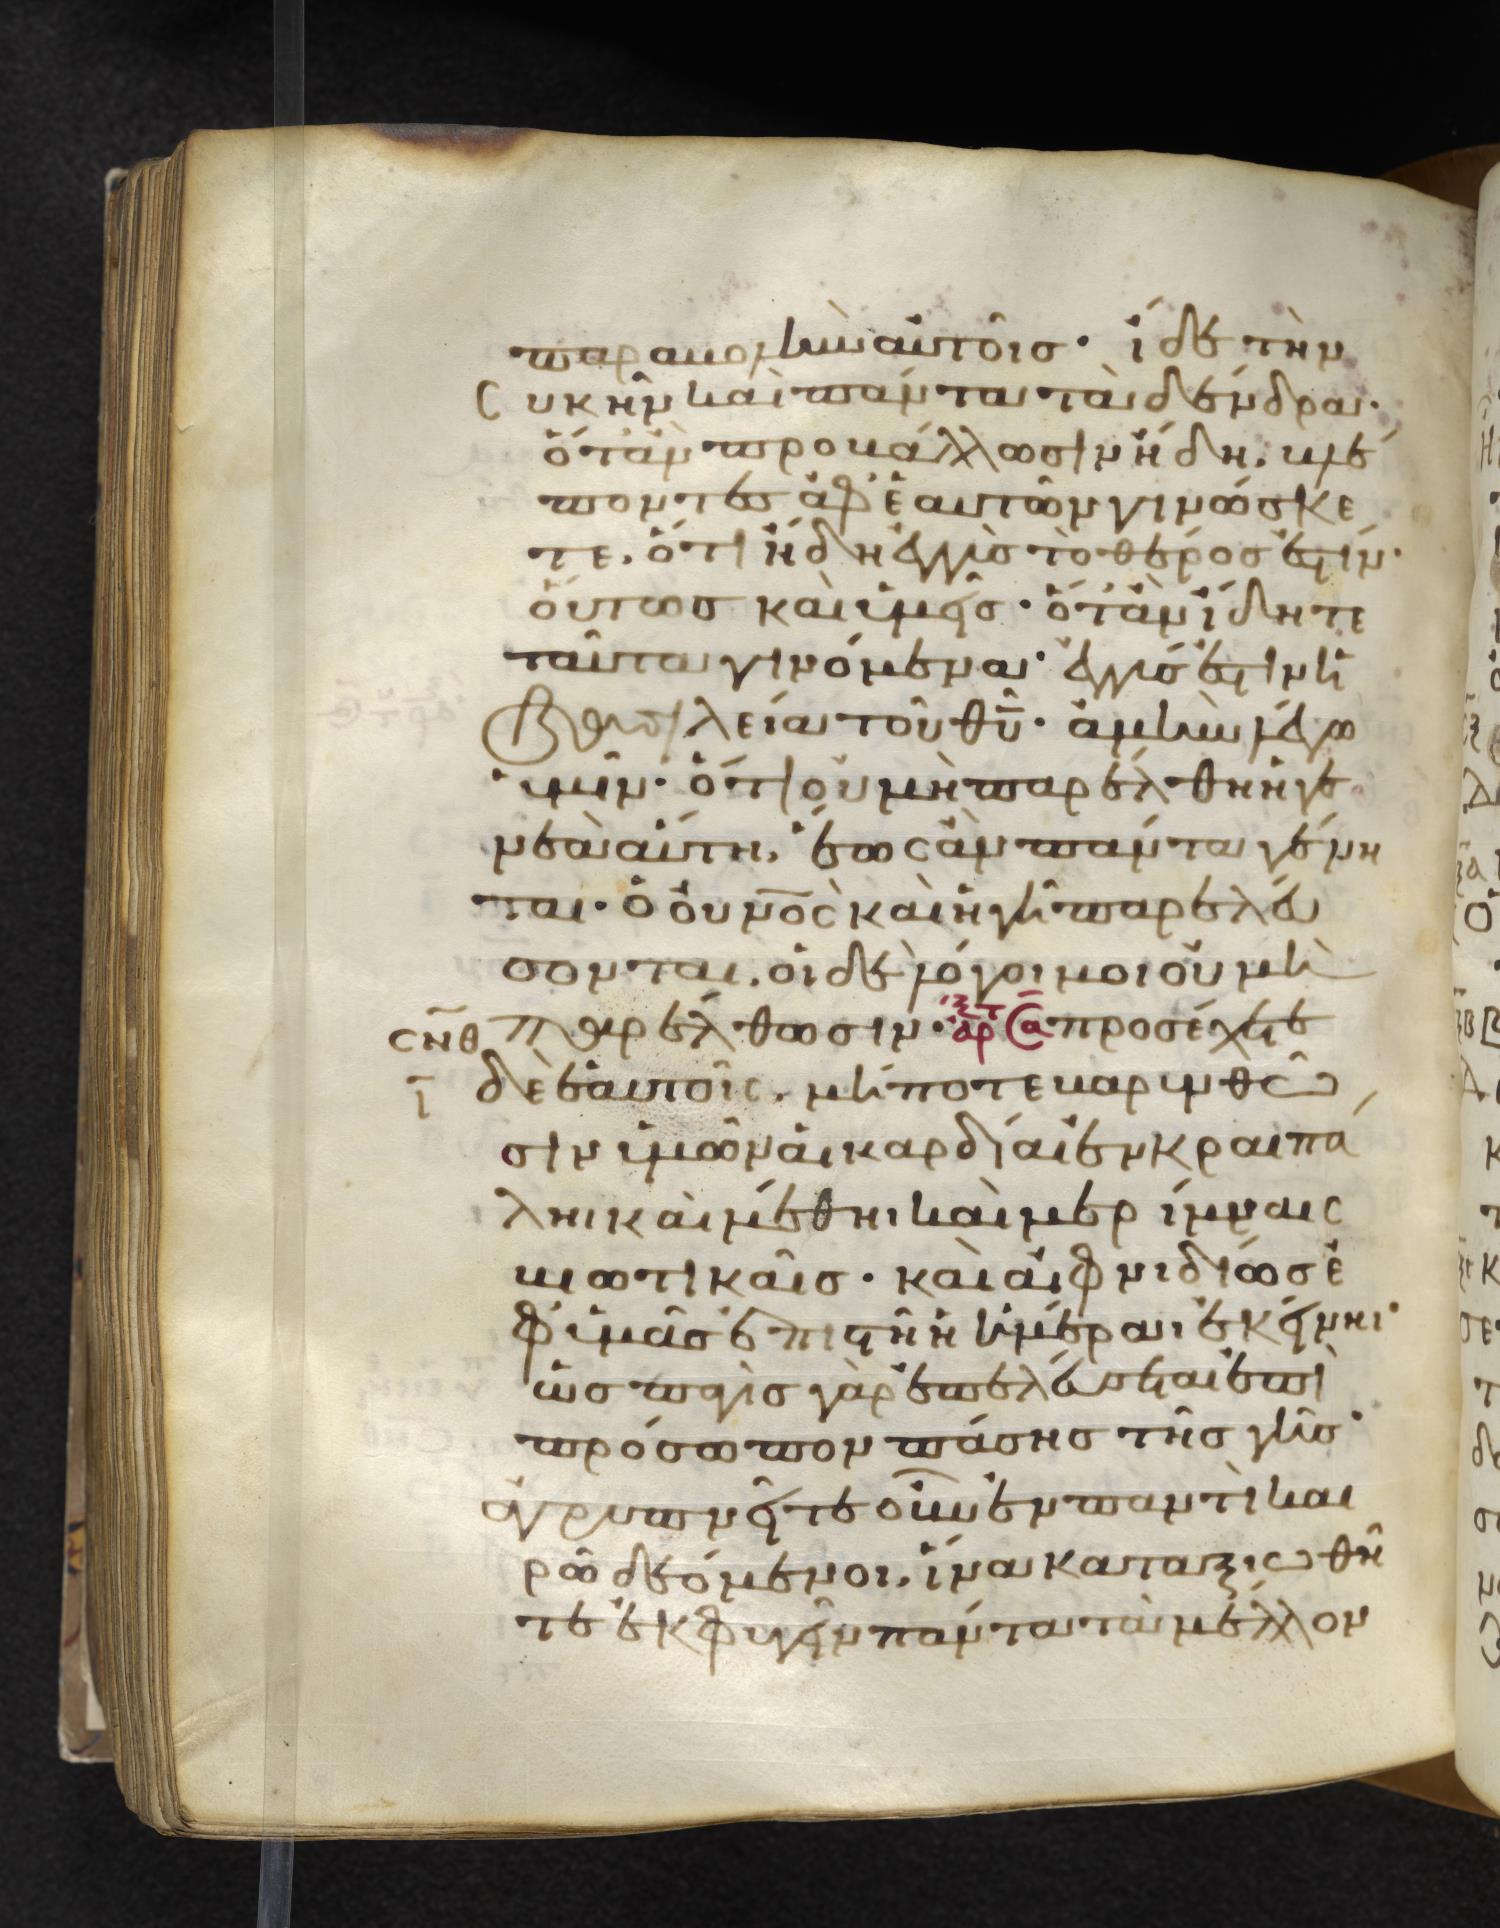 παραβολὴν αὐτοῖσ· ἴδε τὴν
συκῆν καὶ πάντα τὰ δένδρα·
ὅταν προβάλλωσιν ἤδη, βλέ
ποντεσ ἀφ' ἑαυτῶν γινώσκε
τε, ὅτι ἤδη ἐγγὺσ τὸ θέροσ ἐστίν·
οὕτωσ καὶ ὑμεῖσ· ὅταν ἴδητε
ταῦτα γινόμενα· ἐγγύσ ἐστιν ἡ
βασιλεία τοῦ θῦ· ἀμὴν λέγω
ὑμῖν· ὅτι οὐ μὴ παρέλθη ἡ γε
νεὰ αὕτη, ἕως ἂν πάντα γένη
ται· ὁ οὐνὸς καὶ ἡ γῆ παρελεύ
σονται, οἱ δὲ λόγοι μου οὐ μὴ
σνθ παρέλθωσιν· ἀρ προσέχετε
ι δὲ ἑαυτοῖς, μήποτε βαρυνθῶ
σιν ὑμῶν αἱ καρδίαι ἐν κραιπά
λη καὶ μέθη καὶ μερίμναις
βιωτικαῖσ· καὶ αἰφνιδίωσ ἐ
φ' ὑμᾶσ ἐπιστῆ ἡ ἡμέρα ἐκείνη·
ὡσ παγὶσ γὰρ ἐπελεύσεται ἐπὶ
πρόσωπον πάσησ τῆσ γῆσ·
ἀγρυπνεῖτε οὖν ἐν παντὶ και
ρῶ δεόμενοι, ἵνα καταξιωθῆ
τε ἐκφυγεῖν πάντα τὰ μέλλον